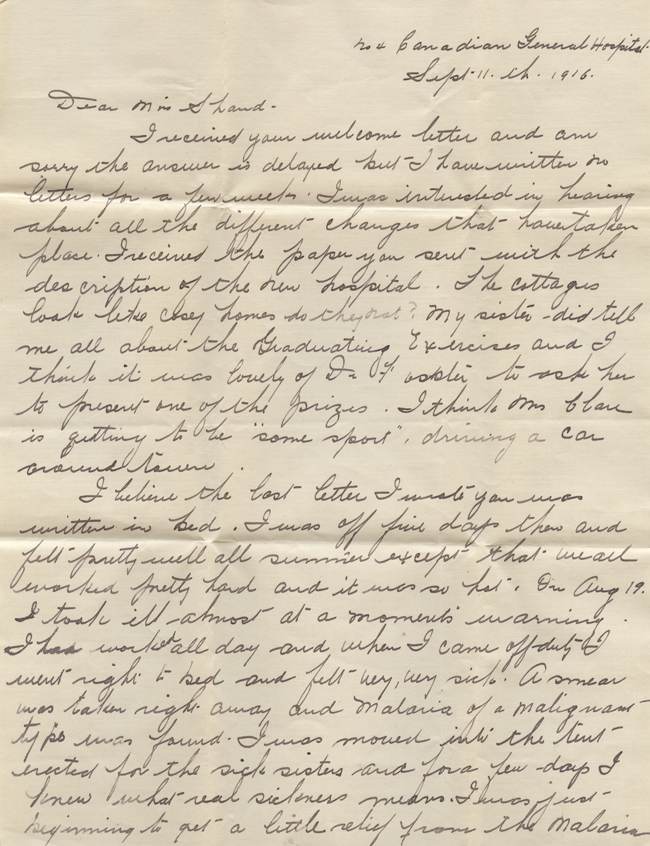 No 4 Canadian General Hospital.
Sept. 11. th. 1916.
Dear Mrs Shand.
I received your welcome letter and am
sorry the answer is delayed but I have written no
letters for a few weeks. I was interested in hearing
about all the different changes that have taken
place. I received the paper you sent with the
description of the new hospital. The cottages
look like cosy homes do they not? My sister did tell
me all about the Graduating Exercises and I
think it was lovely of Dr to ask her
to present one of the prizes. I think Mrs Clare
is getting to be "some sport", driving a car
around town.
I believe the last letter I wrote you was
written in bed. I was off five days then and
felt pretty well all summer except that we all
worked pretty hard and it was so hot. On Aug 19.
I took ill almost at a moments warning.
I had worked all day and when I came off duty I
went right to bed and felt very, very sick. A smear
was taken right away and Malaria of a Malignant
type was found. I was moved into the tent
erected for the sick sisters and for a few days I
knew what real sickness means. I was just
beginning to get a little relief from the Malaria